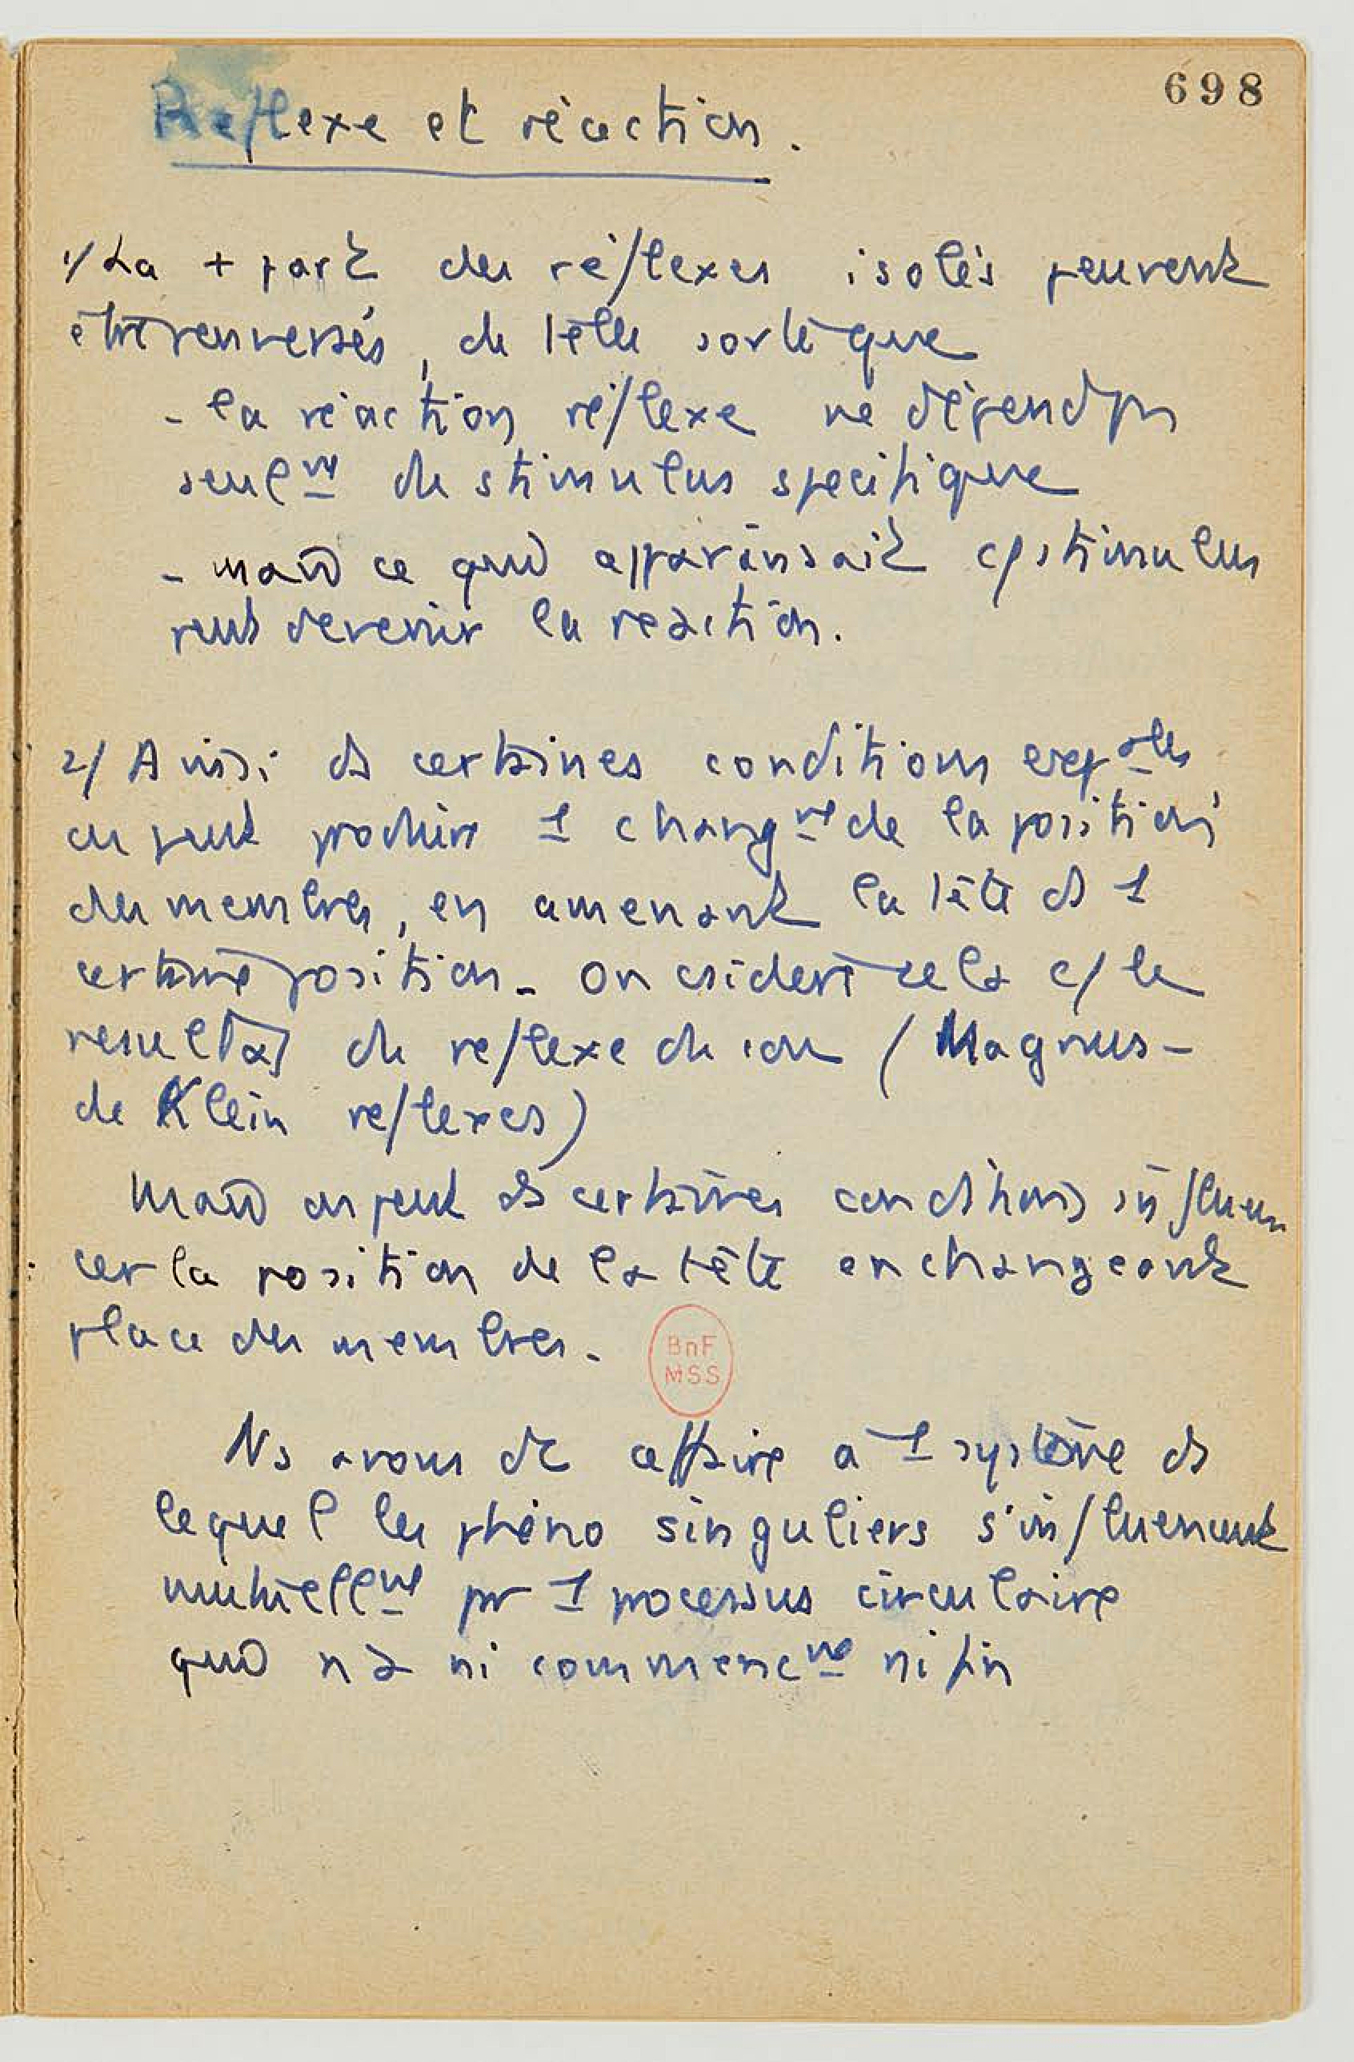 698
Réflexe et réaction.
1/ La + part des réflexes isolés peuvent
être renversés, de telle sorte que
- la réaction réflexe ne dépend pas
seulmt du stimulus specifique
- mais ce qui apparaissait c/ stimulus
peut devenir la reaction.
2/ Ainsi ds certaines conditions expales
on peut produire 1 changmt de la position
des membres, en amenant la tête ds 1
certaine position. On csidere cela c/ le
resultat du reflexe du cou (Magnus-
de Klein reflexes)
Mais on peut ds certaines conditions influen
cer la position de la tête en changeant
place des membres.
BnF
MSS
Ns avons dc affaire a 1 système ds
lequel les phéno singuliers s'influencent
mutuellmt pr 1 processus circulaire
qui n'a ni commencmt ni fin